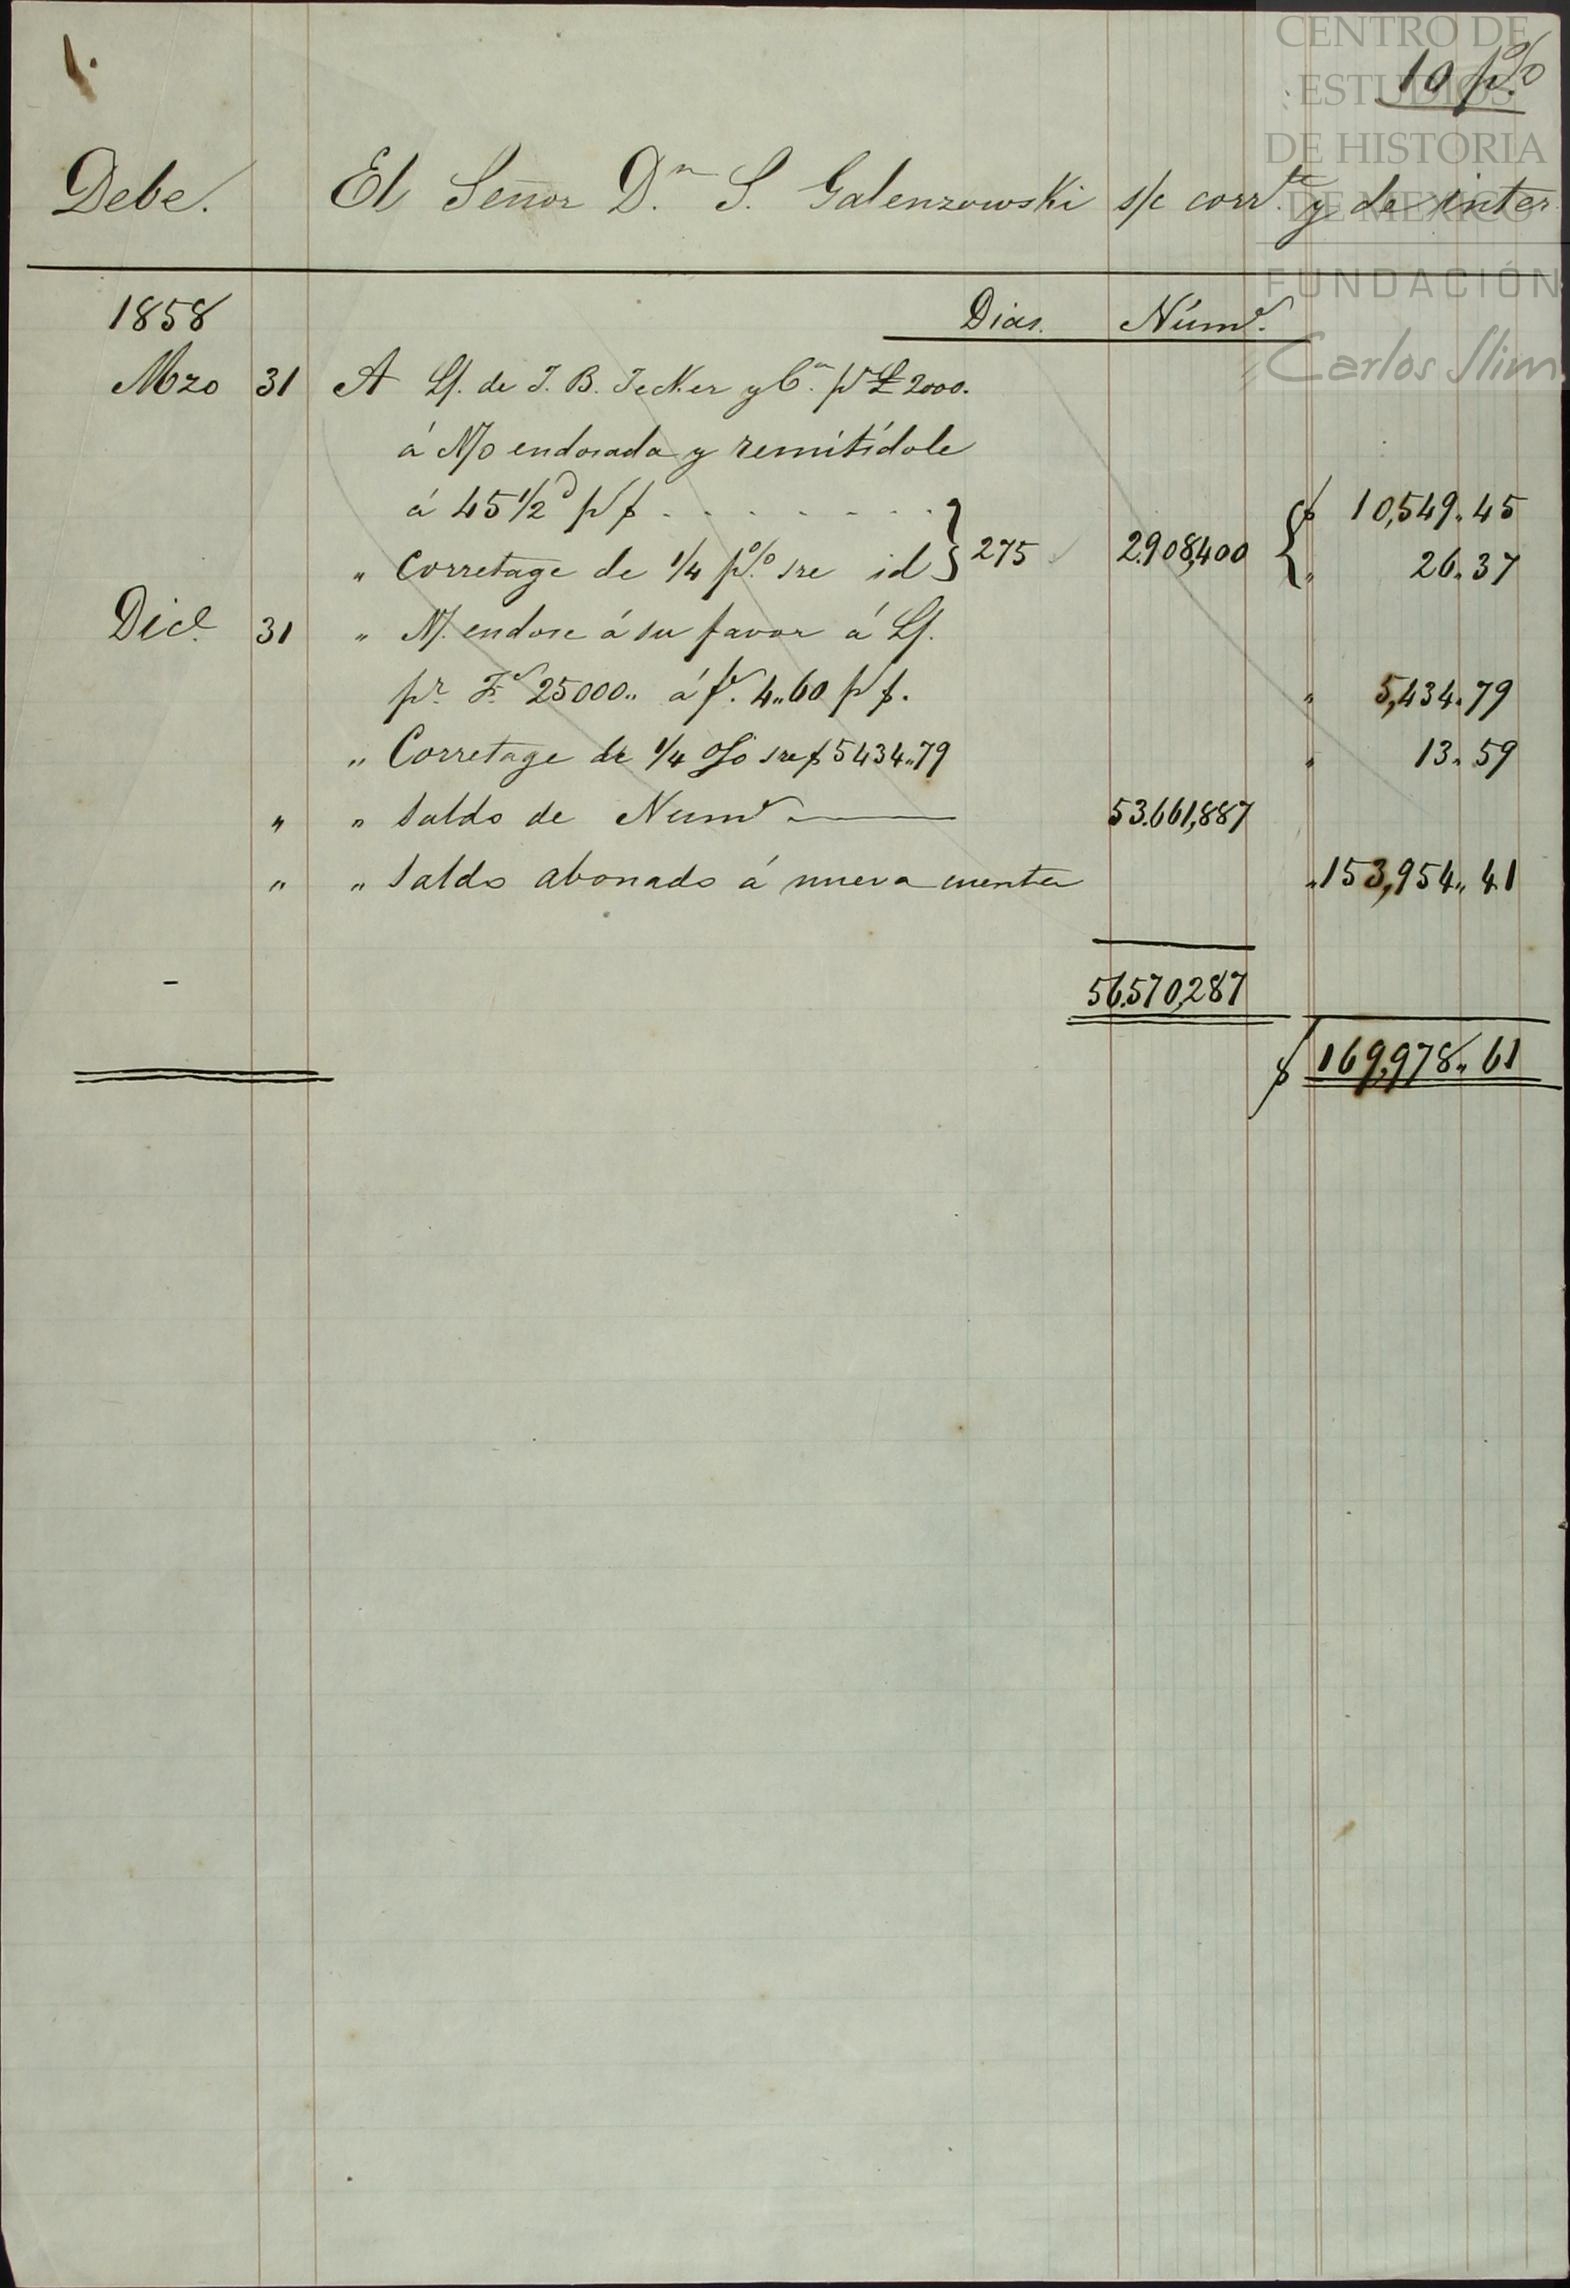 CENTRO DE
ESTUDIOS
DE HISTORIA
DE MEXICO
FUNDACIÓN
Carlos Slim
1.
10 p%
Debe. El Señor Dn. S. Galenzowski s/c corrte. y de inter
1858 Dias. Núms.
Mzo 31 A L/. de J. B. Jecker y Ca. pr £ 2000.
á N/o endosada y remitídole
á 45 1/2 d p $ . . . . . . . . $ 10,549.. 45
„ Corretage de 1/4 p% sre id } 275 2.908,400 { „ 26.. 37
Dice. 31 „ N/. endose á su favor á L/.
pr. Fs. 25000.. á fs. 4..60 p $. „ 5,434.. 79
„ Corretage de 1/4 % sre $ 5434..79 „ 13.. 59
„ „ Saldo de Nums 53.661,887
„ „ Saldo abonado á nueva cuenta „ 153,954.. 41
56.570,287
$ 169,978.. 61